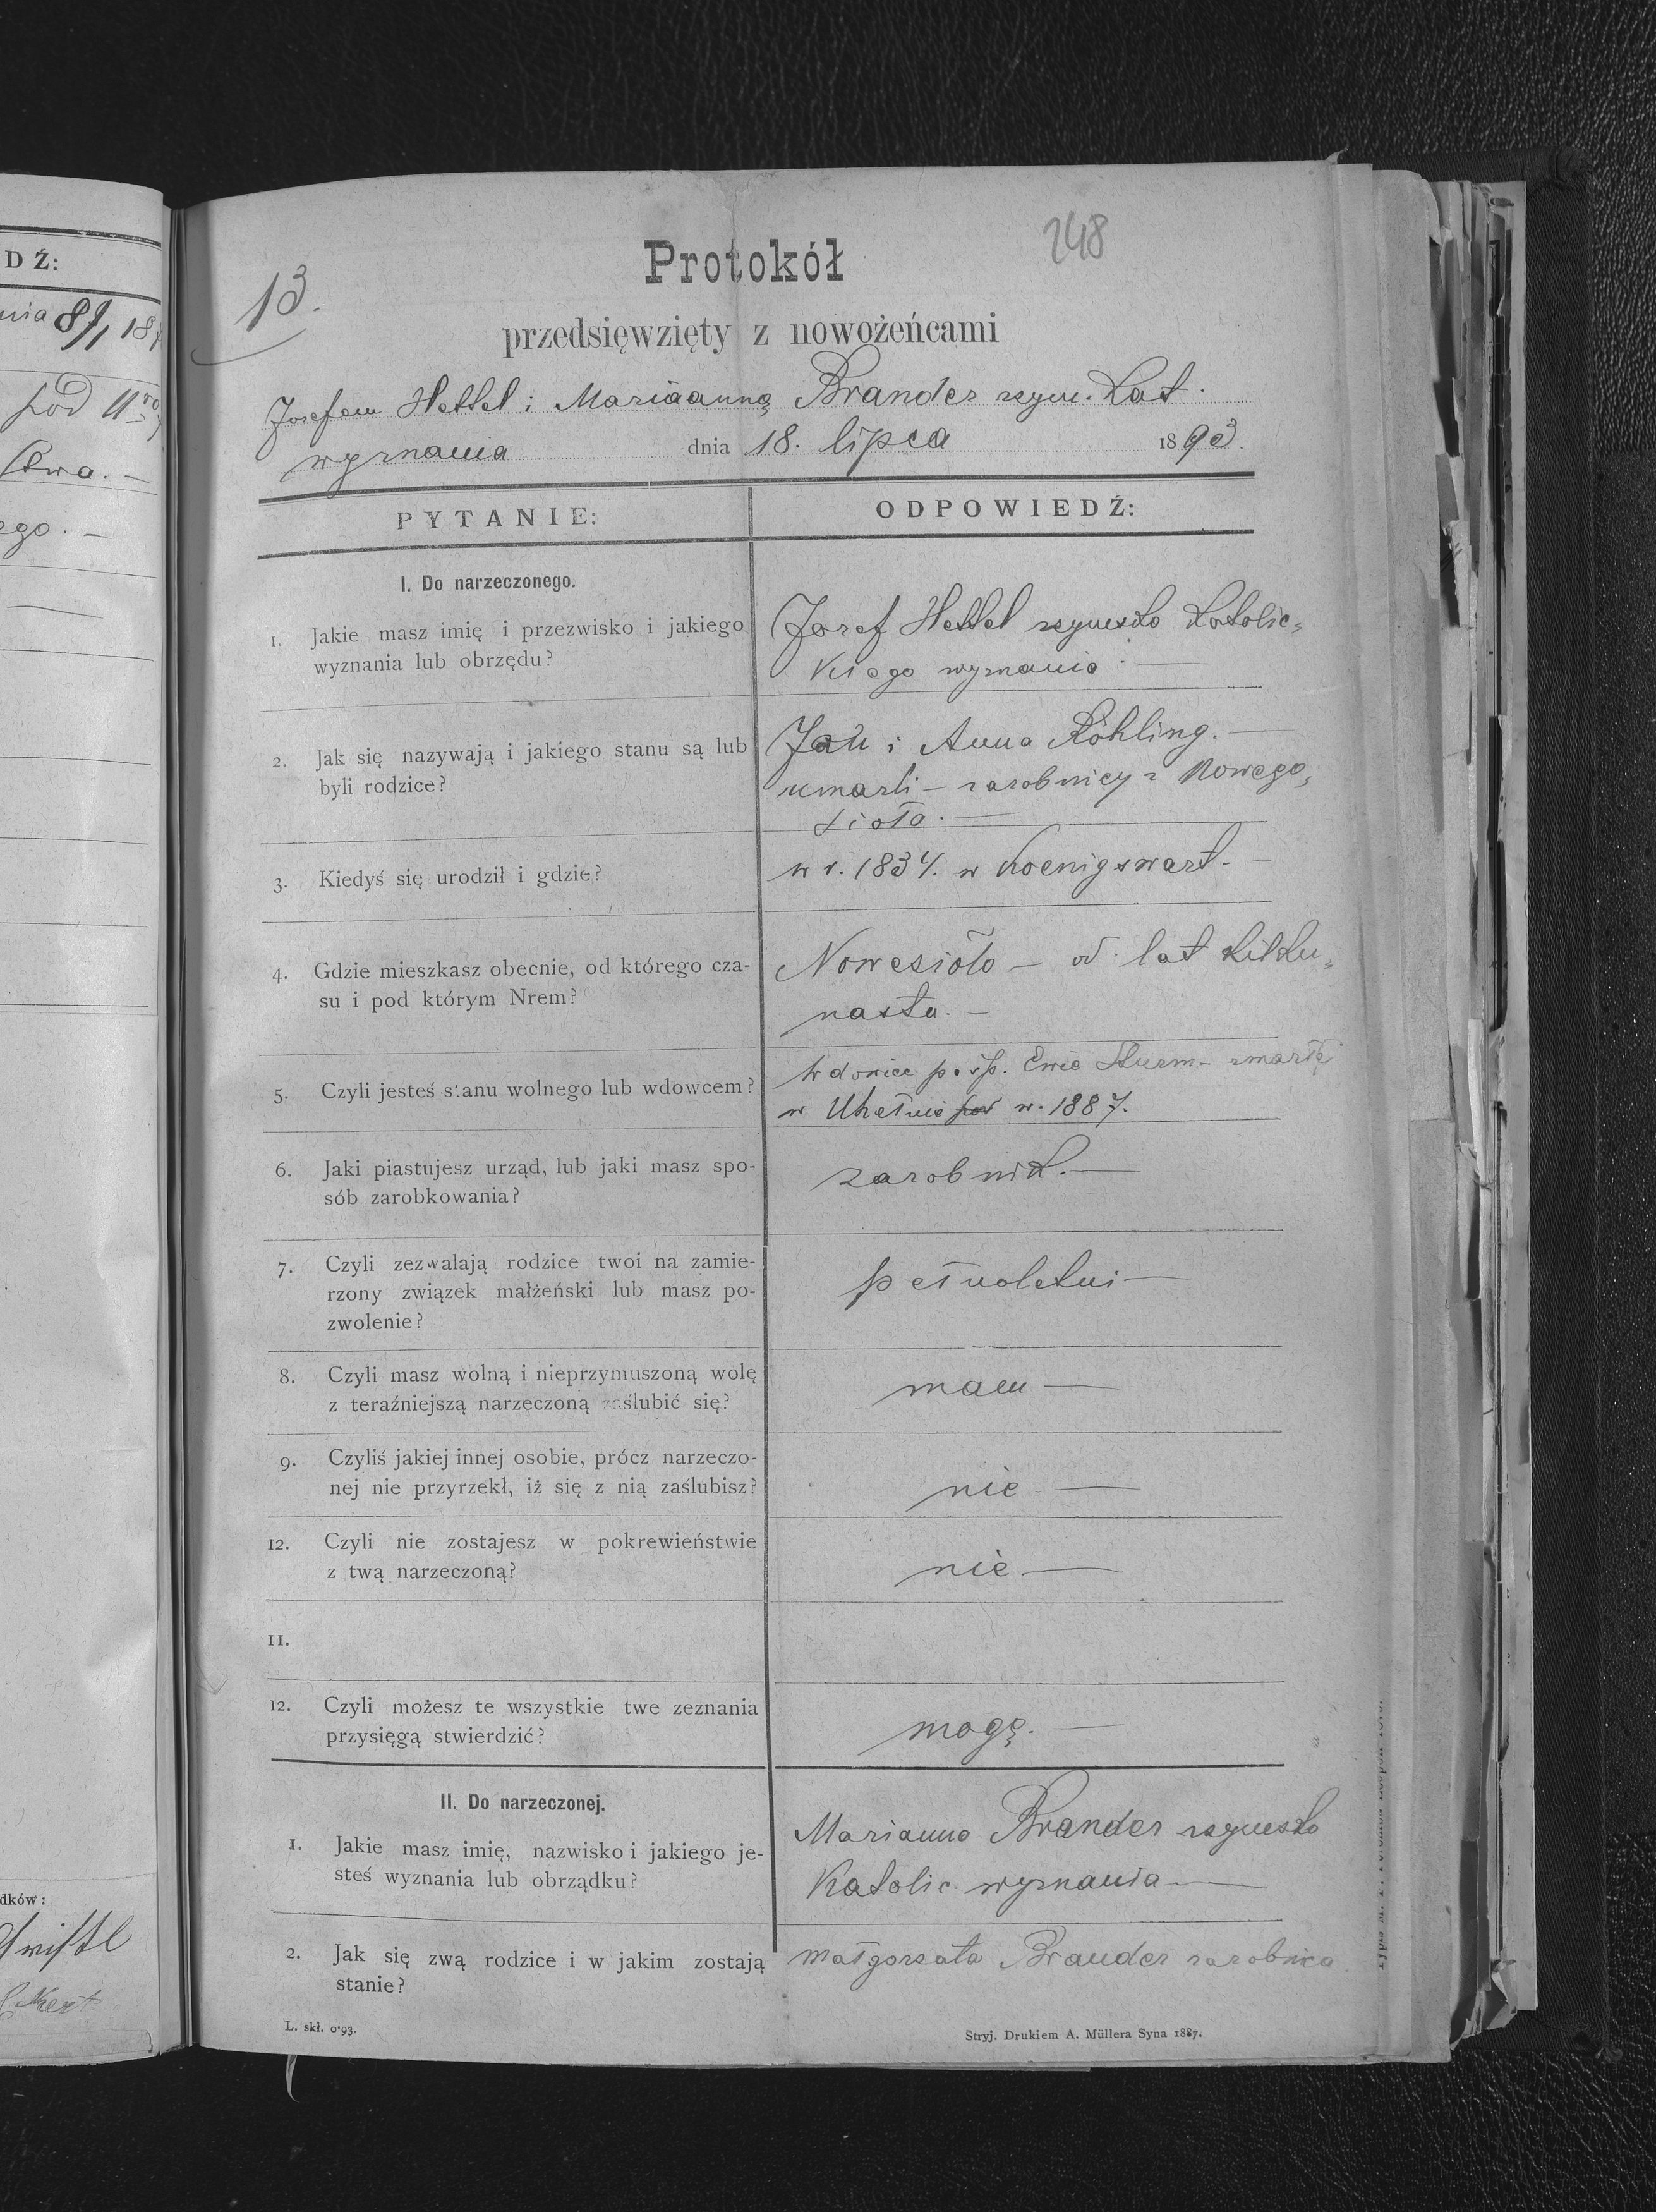 DŹ:
8/1 18
pod
stwa. —
ego. —
dków:
248
13.
Protokół
przedsięwzięty z nowożeńcami
Josefem Hettel i Mariaanną Brander rzym. Kat.
wyznania dnia 18. lipca 1893.
PYTANIE: ODPOWIEDŹ:
I. Do narzeczonego.
1. Jakie masz imię i przezwisko i jakiego
wyznania lub obrzędu?
Josef Hettel rzymsko katolic=
kiego wyznania. —
2. Jak się nazywają i jakiego stanu są lub
byli rodzice?
Jan i Anna Röhling. —
umarli — zarobnicy z Nowego=
sioła. —
3. Kiedyś się urodził i gdzie?
w r. 1834. w Koenigswart. —
4. Gdzie mieszkasz obecnie, od którego cza-
su i pod którym Nrem?
Nowesioło — od lat kilku=
nastu. —
5. Czyli jesteś stanu wolnego lub wdowcem?
Wdowiec po śp. Ewie Sturm — zmarłej
w w. 1887.
6. Jaki piastujesz urząd, lub jaki masz spo-
sób zarobkowania?
zarobnik. —
7. Czyli zezwalają rodzice twoi na zamie-
rzony związek małżeński lub masz po-
zwolenie?
pełnoletni —
8. Czyli masz wolną i nieprzymuszoną wolę
z teraźniejszą narzeczoną zaślubić się?
mam —
9. Czyliś jakiej innej osobie, prócz narzeczo-
nej nie przyrzekł, iż się z nią zaślubisz?
nie. —
12. Czyli nie zostajesz w pokrewieństwie
z twą narzeczoną?
nie —
11.
12. Czyli możesz te wszystkie twe zeznania
przysięgą stwierdzić?
mogę. —
II. Do narzeczonej.
1. Jakie masz imię, nazwisko i jakiego je-
steś wyznania lub obrządku?
Marianna Brander rzymsko
Katolic. wyznania —
2. Jak się zwą rodzice i w jakim zostają
stanie?
Małgorzata Brander zarobnica.
L. skł. 0·93.
Stryj. Drukiem A. Müllera Syna 1887.